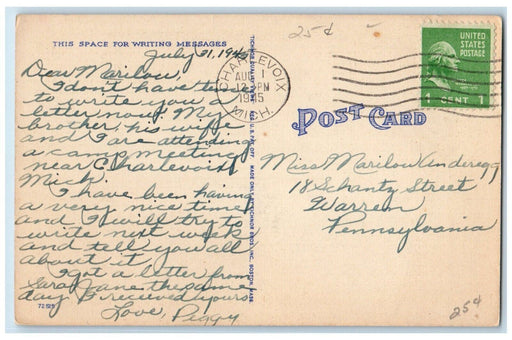 25¢
THIS SPACE FOR WRITING MESSAGES
July 31, 1945
Dear Marilou,
I don't have time
to write you a
letter now. My
brother, his wife
and I are attending
a camp meeting
near Charlevoix
Mich.
I have been having
a very nice time
and I will try to
write next week
and tell you all
about it.
I got a letter from
Sara Jane the same
day I received yours
Love, Peggy
72529
CHARLEVOIX
AUG 1
12 PM
1945
MICH.
UNITED
STATES
POSTAGE
1 CENT 1
POST CARD
Miss Marilou Anderegg
18 Schantz Street
Warren
Pennsylvania
25¢